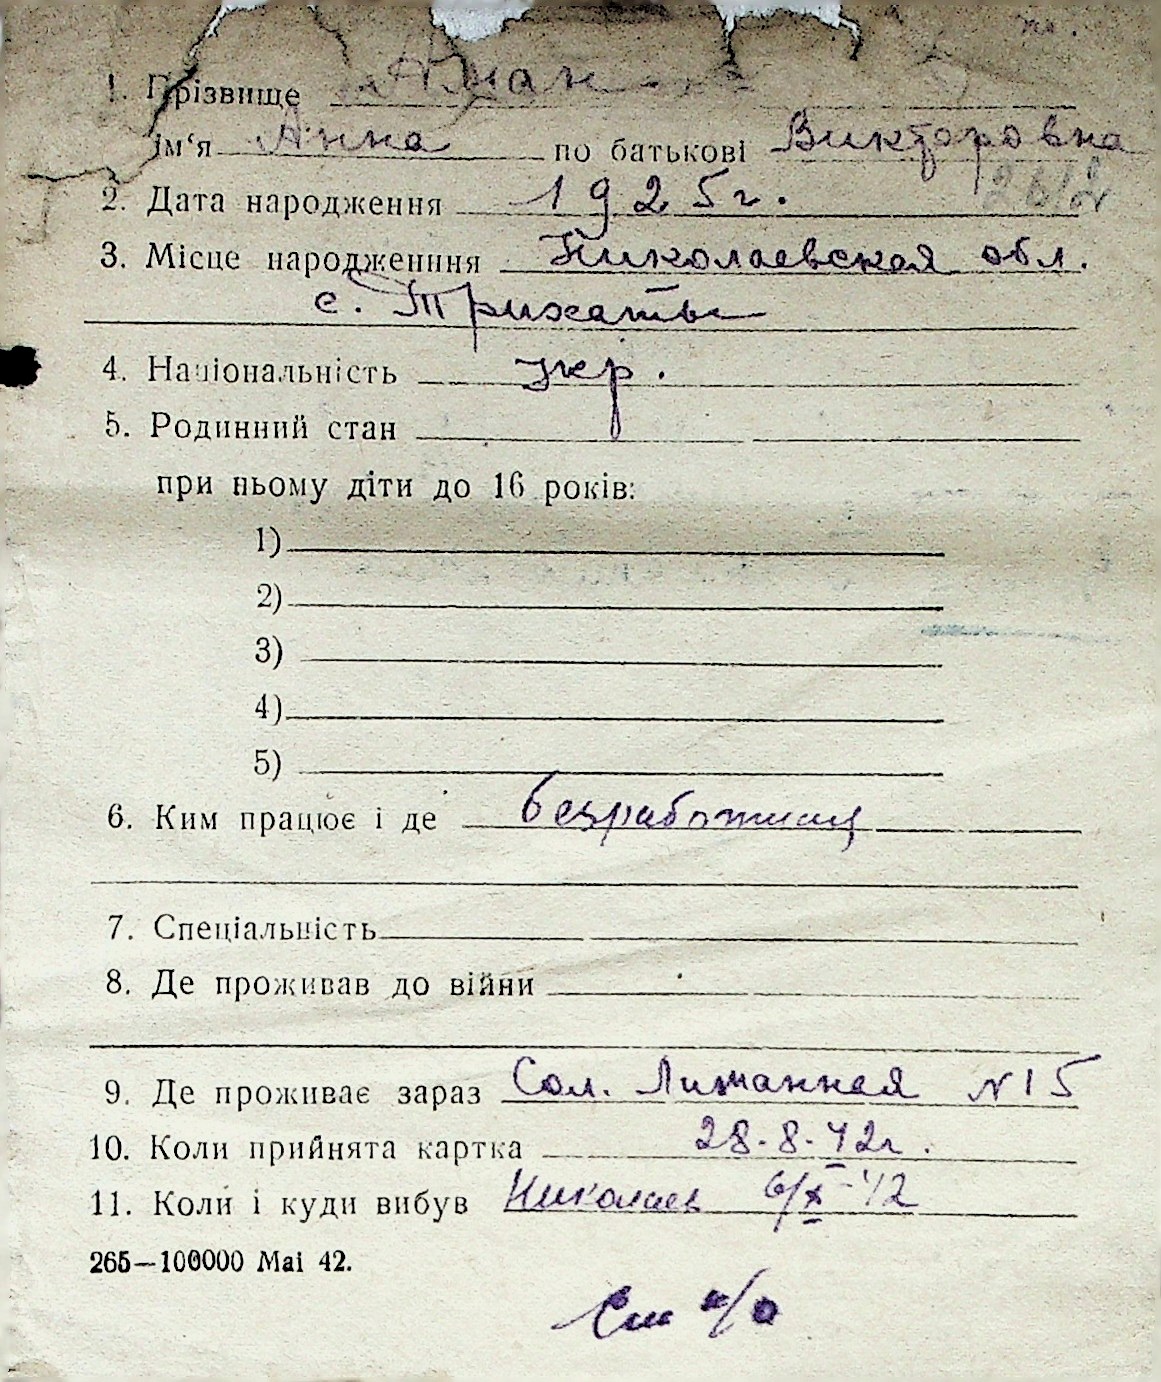 1. Прізвище
ім‘я Анна по батькові Викторовна
2. Дата народження 1925г.
3. Місце народженння Николаевская обл.
с. Трихаты
4. Національність укр.
5. Родинний стан
при ньому діти до 16 років:
1)
2)
3)
4)
5)
6. Ким працює і де безработная
7. Спеціальність
8. Де проживав до війни
9. Де проживає зараз Сол. Лиманная №15
10. Коли прийнята картка 28-8-42г.
11. Коли і куди вибув Николаев 6/X-42
265—100000 Mai 42.
См н/о